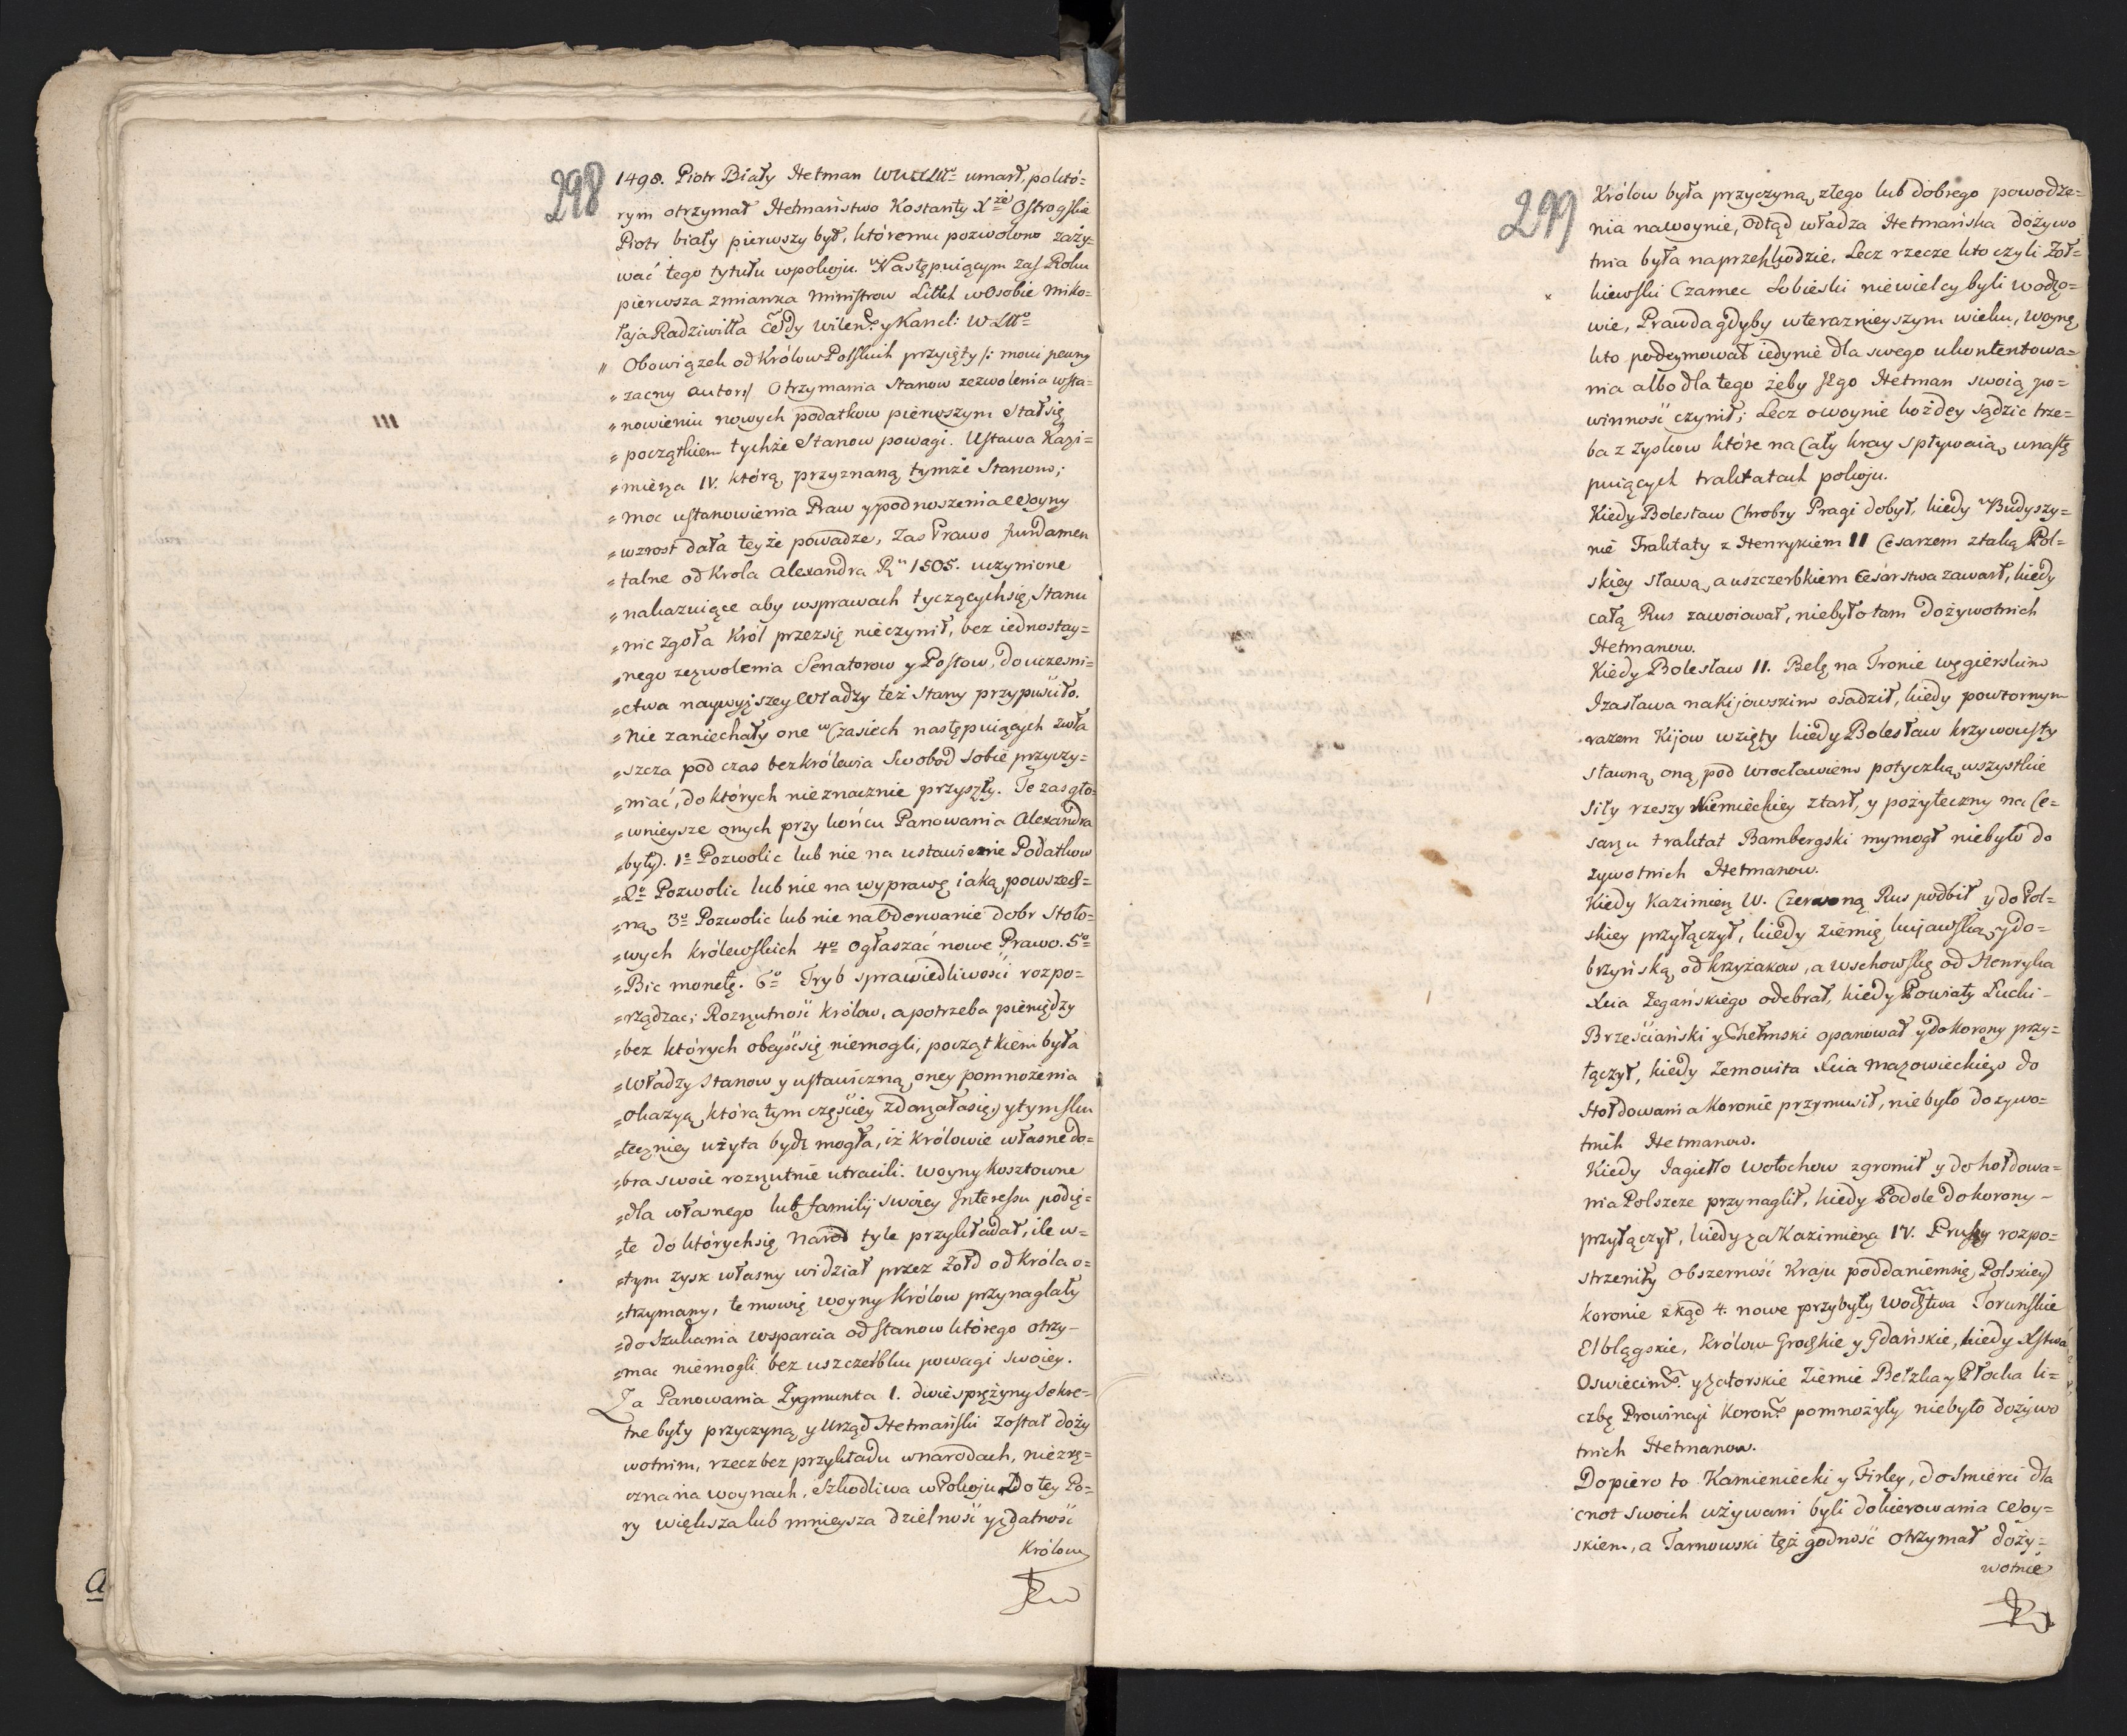 298
1498. Piotr Biały Hetman WXLitt:º umarł, po któ=
rym otrzymał Hetmaństwo Kostanty Xżę Ostrogskie
Piotr biały pierwszy był, któremu pozwolono zaży=
wać tego tytułu wpokoju. wNastępuiącym zaś Roku
pierwsza zmianka Ministrow Littch wOsobie Miko=
łaja Radziwiłła Wdy Wileń. y Kancl: WLittº
" Obowiązek od Królow Polskich przyięty /: mowi pewny
" zacny autor :/ Otrzymania Stanow zezwolenia wsta=
" nowieniu nowych podatkow pierwszym Stał się
= początkiem tychże Stanow powagi. Ustawa Kazi=
= mierza IV. którą przyznaną tymże Stanom;
= moc ustanowienia Praw y podnoszenia Woyny
= wzrost dała teyże powadze, Zas Prawo fundamen
= talne od Krola Alexandra Rº 1505. uczynione
= nakazuiące aby wsprawach tyczących się Stanu
= nic zgoła Król przez się nieczynił, bez iednostay=
= nego zezwolenia Senatorow y Posłow, do uczesni=
= ctwa naywyższey Władzy też Stany przypuściło.
= Nie zaniechały one wCzasiech następuiących zwła
= szcza pod czas bezkrólewia Swobod Sobie przyczy=
= niać, do których nieznacznie przyszły. Te zas gło=
= wnieysze onych przy końcu Panowania Alexandra
= były. 1º Pozwolic lub nie na ustawienie Podatkow
= 2º Pozwolic lub nie na wyprawę iaką powszech=
= ną 3º Pozwolic lub nie na Oderwanie dobr Stoło=
= wych królewskich 4º Ogłaszać nowe Prawo. 5º
= Bic monetę. 6º Tryb sprawiedliwości rozpo=
= rządzac; Rozrzutność królow, a potrzeba pieniędzy
= bez których obeyść się niemogli, początkiem była
= Władzy Stanow y ustawiczną oney pomnożenia
= okazyą, która tym częściey zdarzała się y tym sku
= teczniey użyta bydź mogła, iż Królowie własne do=
= bra swoie rozrzutnie utracili. Woyny kosztowne
= dla własnego lub familij swoiey Interessu podię=
= te do których się Narod tyle przykładał, ile w=
= tym zysk własny widział przez Żołd od Króla o=
= trzymany, te mowię woyny Królow przynaglały
= do Szukania wsparcia od Stanow którego otrzy=
= mac niemogli bez uszczerbku powagi swoiey.
Za Panowania Zygmunta I. dwie sprężyny Sekre=
tne były przyczyną y Urząd Hetmański został doży
wotnim, rzecz bez przykładu wnarodach, niezrę=
czna na woynach, Szkodliwa w Pokoju. Do tey Po=
ry większa lub mnieysza dzielność y zdatność
Królow
299
Królow była przyczyną złego lub dobrego powodze=
nia nawoynie, Odtąd władza Hetmańska dożywo
tnia była na przeszkodzie. Lecz rzecze kto czyli Żoł=
kiewski Czarnec Sobieski niewielcy byli wodzo=
wie, Prawda gdyby wterazńieyszym wieku, woynę
kto podeymował iedynie dla swego ukontentowa=
nia albo dla tego żeby Jego Hetman swoią po=
winność czynił; Lecz o woynie każdey sądzic trze=
ba z zyskow które na Cały kray spływaią, w nastę
puiących traktatach pokoju.
Kiedy Bolesław Chrobry Pragi dobył, kiedy wBudyszy=
nie Traktaty z Henrykiem II Cesarzem z taką Pol=
skiey sławą, a uszczerbkiem Cesarstwa zawarł, kiedy
całą Rus zawoiował, niebyło tam Dożywotnich
Hetmanow.
Kiedy Bolesław II. Belę na Tronie węgierskim
Izasława na Kijowskim osadził, kiedy powtornym
razem Kijow wzięty kiedy Bolesław krzywousty
sławną oną pod Wrocławiem potyczką wszystkie
Siły rzeszy Niemieckiey ztarł, y pożyteczny na Ce=
sarzu traktat Bambergski wymogł niebyło do
żywotnich Hetmanow.
Kiedy Kazimierz W. Czerwoną Rus podbił y do Pol=
skiey przyłączył, kiedy Ziemię kujawską y do=
brzyńską od krzyżakow, a Wschowską od Henryka
Xcia Żegańskiego odebrał, kiedy Powiaty Łucki=
Brześciański y Chełmski opanował y do korony przy=
łączył, kiedy Zemowita Xcia Mazowieckiego do
Hołdowania Koronie przymusił, niebyło dożywo=
tnich Hetmanow.
Kiedy Jagiełło Wołochow zgromił y do hołdowa=
nia Polszcze przynaglił, kiedy Podole do korony=
przyłączył, kiedy za Kazimierza IV. Prussy rozpo=
strzeniły Obszerność Kraju poddaniem się Polskiey
koronie zkąd 4. nowe przybyły Wodztwa Toruńskie
Elblągskie, Królow Grodzkie y Gdańskie, kiedy Xstwa
Oswiecim. y Zatorskie Ziemie Bełzka y Płocka li=
czbę Prowincyi Koron. pomnożyły niebyło dożywo
tnich Hetmanow.
Dopiero to Kamieniecki y Firley, do Smierci dla
cnot swoich używani byli do kierowania Woy=
skiem, a Tarnowski tęż godność otrzymał doży=
wotnie